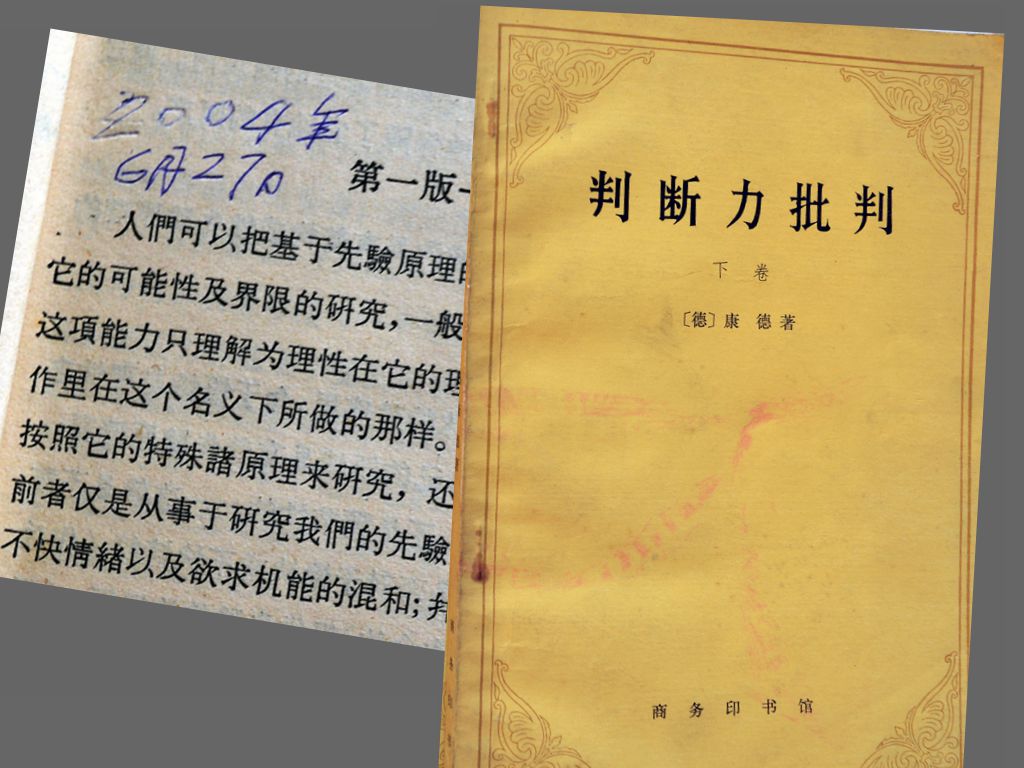 2004年
6月27日
第一版
人們可以把基于先驗原理的
它的可能性及界限的研究，一般
这項能力只理解为理性在它的理
作里在这个名义下所做的那样。
按照它的特殊諸原理来研究，还
前者仅是从事于研究我們的先驗
不快情緒以及欲求机能的混和；
判断力批判
下卷
〔德〕康德著
商务印书馆
商务印